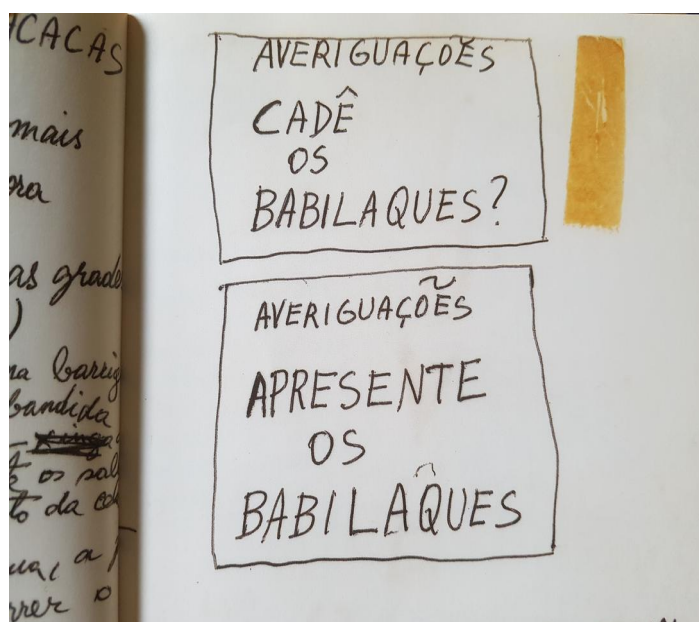 ACACAS
mais
ora
as grade
)
na barrig
bandida
os sal
to da co
ua, a
rrer o
AVERIGUAÇÕES
CADÊ
OS
BABILAQUES?
AVERIGUAÇÕES
APRESENTE
OS
BABILAQUES